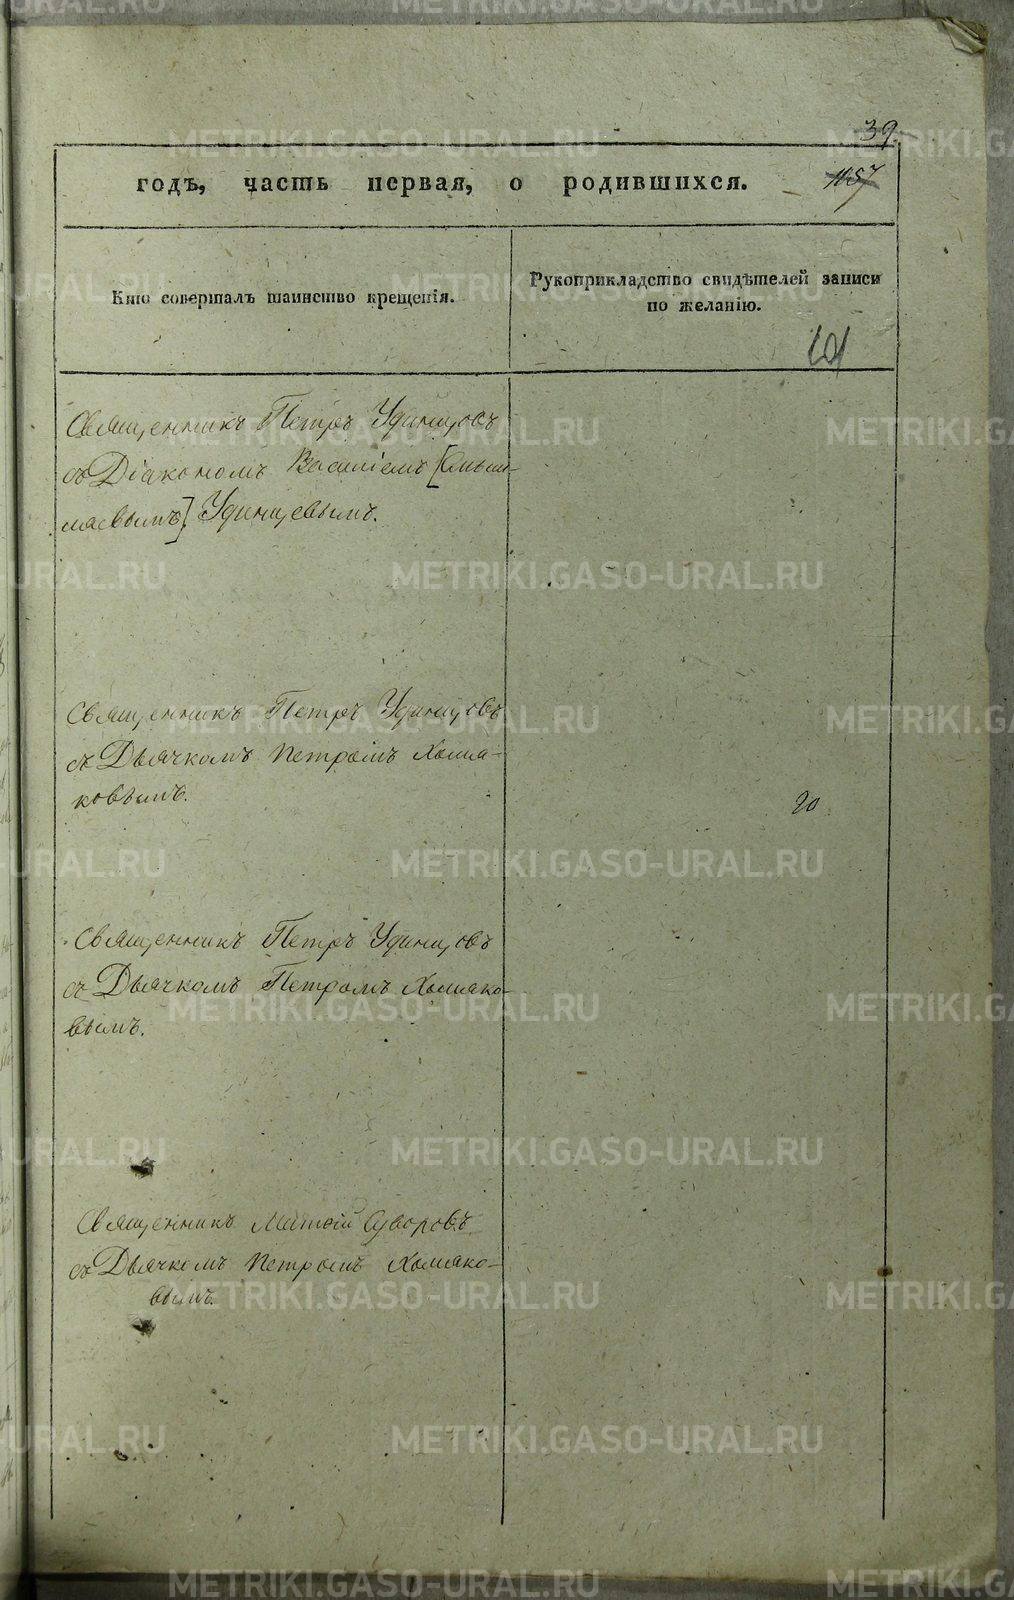 39.
годъ, часть первая, о родившихся. 1157
Кто совершалъ таинство крещенія.
Рукоприкладство свидѣтелей записи
по желанію.
Священникъ Петръ Удинцовъ
съ Діакономъ Василіемъ [Смыш-
ляевымъ] Удинцевымъ.
Священникъ Петръ Удинцовъ
съ Дьячкомъ Петромъ Хомя-
ковымъ.
20
Священникъ Петръ Удинцовъ
съ Дьячкомъ Петромъ Хомяко-
вымъ.
Священникъ Матѳій Суворовъ
съ Дьячкомъ Петромъ Хомяко-
вымъ.
METRIKI.GASO-URAL.RU